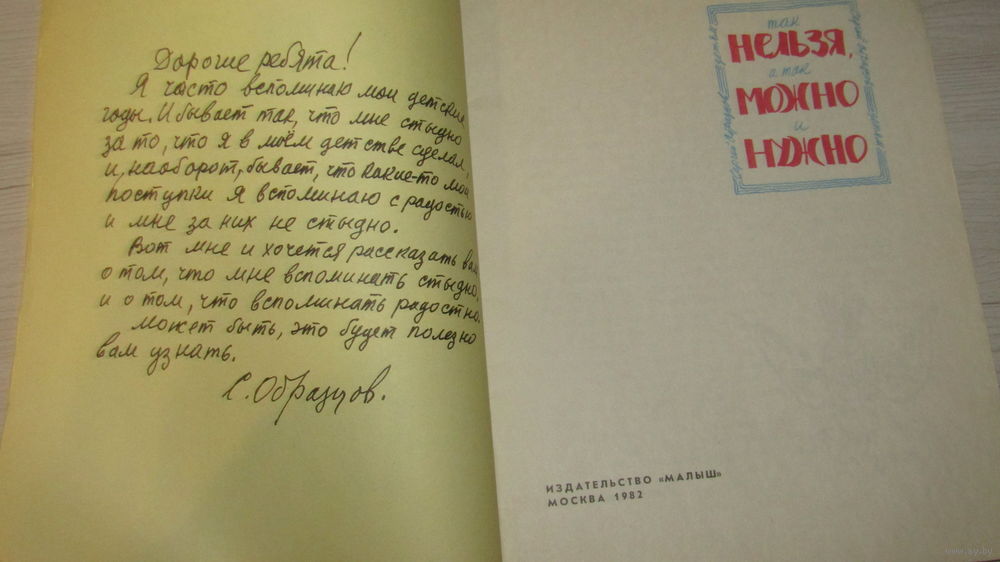 Дорогие ребята!
Я часто вспоминаю мои детские
годы. И бывает так, что мне стыдно
за то, что я в моём детстве сделал,
и, наоборот, бывает, что какие-то мои
поступки я вспоминаю с радостью
и мне за них не стыдно.
Вот мне и хочется рассказать вам
о том, что мне вспоминать стыдно,
и о том, что вспоминать радостно.
Может быть, это будет полезно
вам узнать.
С. Образцов.
так
НЕЛЬЗЯ,
а так
МОЖНО
и
НУЖНО
ИЗДАТЕЛЬСТВО «МАЛЫШ»
МОСКВА 1982